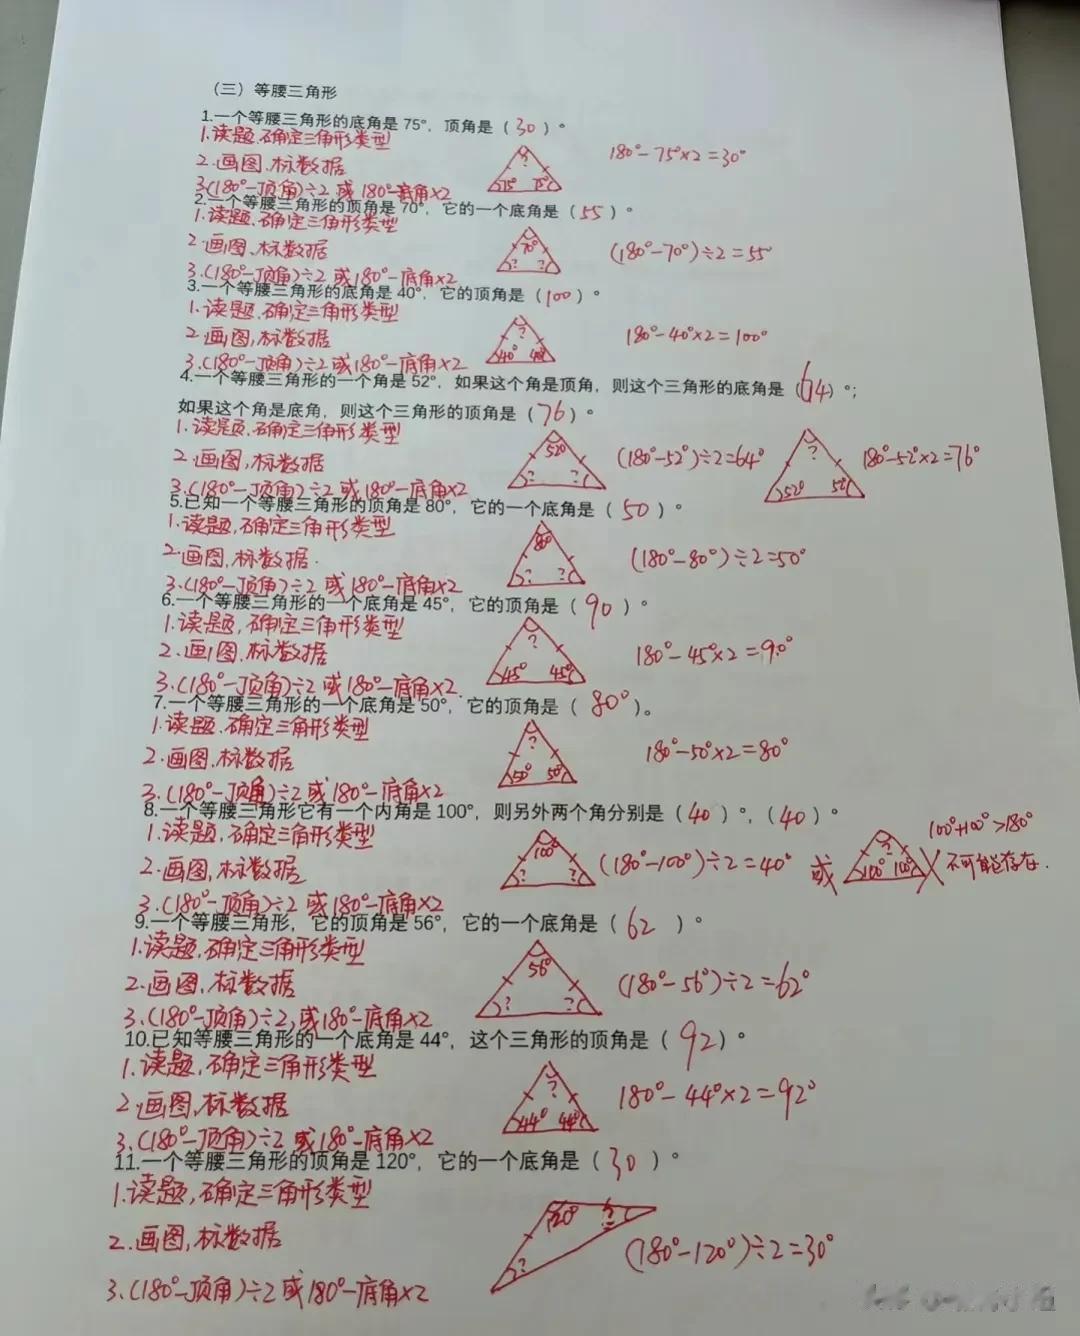 （三）等腰三角形
1.一个等腰三角形的底角是 75°，顶角是（30）°
1.读题,确定三角形类型
2.画图,标数据
? 75° 75°
180°-75°×2=30°
3.(180°-顶角)÷2 或 180°-底角×2
2.一个等腰三角形的顶角是 70°，它的一个底角是（55）°
1.读题,确定三角形类型
2.画图,标数据
70° ? ?
(180°-70°)÷2=55°
3.(180°-顶角)÷2 或 180°-底角×2
3.一个等腰三角形的底角是 40°，它的顶角是（100）°
1.读题,确定三角形类型
2.画图,标数据
? 40° 40°
180°-40°×2=100°
3.(180°-顶角)÷2 或 180°-底角×2
4.一个等腰三角形的一个角是 52°，如果这个角是顶角，则这个三角形的底角是（64）°；
如果这个角是底角，则这个三角形的顶角是（76）°
1.读题,确定三角形类型
2.画图,标数据
52° ? ?
(180°-52°)÷2=64°
? 52° 52°
180°-52°×2=76°
3.(180°-顶角)÷2 或 180°-底角×2
5.已知一个等腰三角形的顶角是 80°，它的一个底角是（50）°
1.读题,确定三角形类型
2.画图,标数据.
80° ? ?
(180°-80°)÷2=50°
3.(180°-顶角)÷2 或 180°-底角×2
6.一个等腰三角形的一个底角是 45°，它的顶角是（90）°
1.读题,确定三角形类型
2.画图,标数据
? 45° 45°
180°-45°×2=90°
3.(180°-顶角)÷2 或 180°-底角×2.
7.一个等腰三角形的一个底角是 50°，它的顶角是（80°）。
1.读题,确定三角形类型
2.画图,标数据
? 50° 50°
180°-50°×2=80°
3.(180°-顶角)÷2 或 180°-底角×2
8.一个等腰三角形它有一个内角是 100°，则另外两个角分别是（40）°，（40）°
1.读题,确定三角形类型
2.画图,标数据
100° ? ?
(180°-100°)÷2=40°
或
? 100° 100°
100°+100°>180°
不可能存在.
3.(180°-顶角)÷2 或 180°-底角×2
9.一个等腰三角形，它的顶角是 56°，它的一个底角是（62）°
1.读题,确定三角形类型
2.画图,标数据
56° ? ?
(180°-56°)÷2=62°
3.(180°-顶角)÷2,或 180°-底角×2
10.已知等腰三角形的一个底角是 44°，这个三角形的顶角是（92）°
1.读题,确定三角形类型
2.画图,标数据
? 44° 44°
180°-44°×2=92°
3.(180°-顶角)÷2 或 180°-底角×2
11.一个等腰三角形的顶角是 120°，它的一个底角是（30）°
1.读题,确定三角形类型
2.画图,标数据
120° ? ?
(180°-120°)÷2=30°
3.(180°-顶角)÷2 或 180°-底角×2